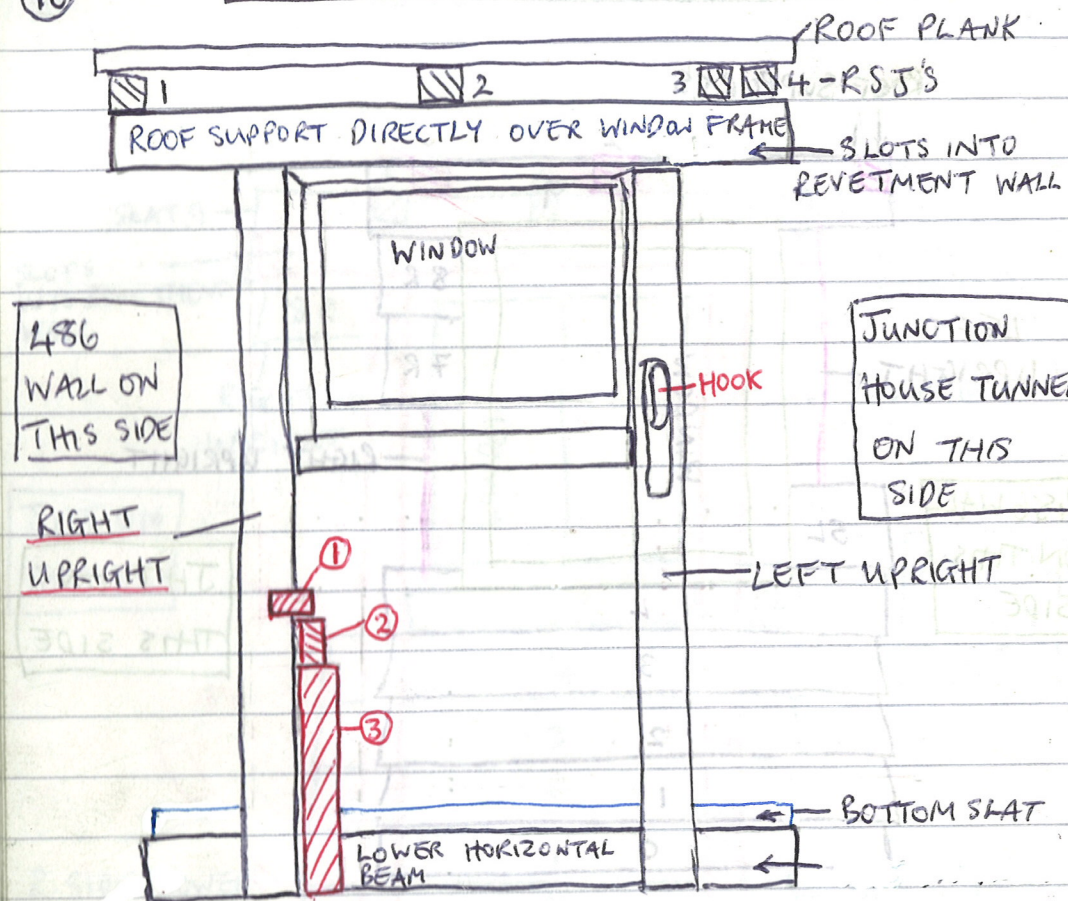 10
ROOF PLANK
1
2
3
4 - RSJ'S
ROOF SUPPORT DIRECTLY OVER WINDOW FRAME
SLOTS INTO
REVETMENT WALL
WINDOW
486
WALL ON
THIS SIDE
JUNCTION
HOUSE TUNNE
ON THIS
SIDE
HOOK
RIGHT
UPRIGHT
1
LEFT UPRIGHT
2
3
BOTTOM SLAT
LOWER HORIZONTAL
BEAM